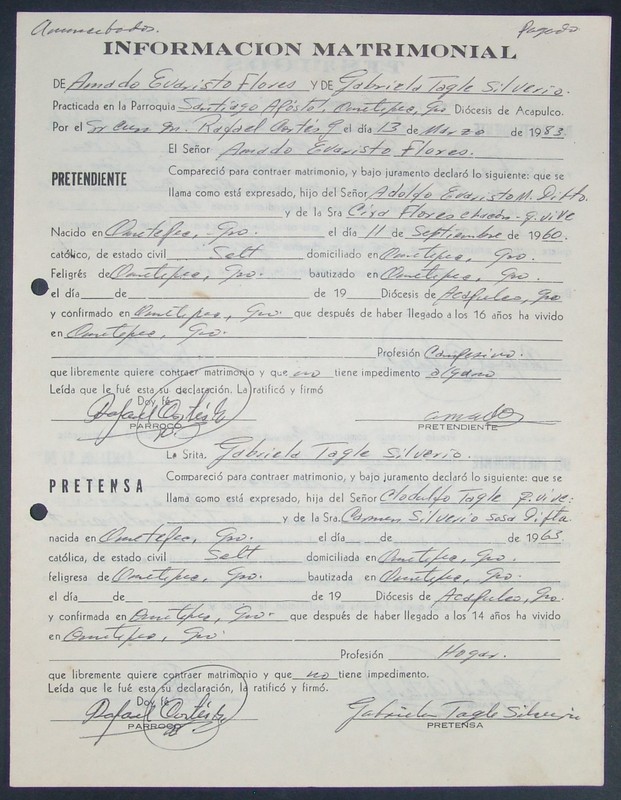 Amancebados. Pagado
INFORMACION MATRIMONIAL
DE Amado Evaristo Flores Y DE Gabriela Tagle Silverio.
Practicada en la Parroquia Santiago Apóstol, Ometepec, Gro Diócesis de Acapulco.
Por el Sr Cura Rafael Cortés G el día 13 de Marzo de 1983.
El Señor Amado Evaristo Flores.
PRETENDIENTE
Compareció para contraer matrimonio, y bajo juramento declaró lo siguiente: que se
llama como está expresado, hijo del Señor Adolfo Evaristo M. Difto.
y de la Sra Cira Flores q. vive
Nacido en Ometepec, Gro. el día 11 de Septiembre de 1960.
católico, de estado civil Solt domiciliado en Ometepec, Gro.
Feligrés de Ometepec, Gro. bautizado en Ometepec, Gro.
el día de de 19 Diócesis de Acapulco, Gro
y confirmado en Ometepec, Gro. que después de haber llegado a los 16 años ha vivido
en Ometepec, Gro.
Profesión Campesino.
que libremente quiere contraer matrimonio y que no tiene impedimento alguno
Leída que le fué esta su declaración. La ratificó y firmó
Doy fé
Rafael Cortés G. Amado
PARROCO PRETENDIENTE
La Srita. Gabriela Tagle Silverio.
PRETENSA
Compareció para contraer matrimonio, y bajo juramento declaró lo siguiente: que se
llama como está expresado, hija del Señor Clodulfo Tagle q. vive:
y de la Sra. Carmen Silverio Sosa Difta
nacida en Ometepec, Gro. el día de de 1965
católica, de estado civil Solt domiciliada en Ometepec, Gro.
feligresa de Ometepec, Gro. bautizada en Ometepec, Gro.
el día de de 19 Diócesis de Acapulco, Gro.
y confirmada en Ometepec, Gro. que después de haber llegado a los 14 años ha vivido
en Ometepec, Gro.
Profesión Hogar.
que libremente quiere contraer matrimonio y que no tiene impedimento.
Leída que le fué esta su declaración, la ratificó y firmó.
Doy fé
Rafael Cortés G. Gabriela Tagle Silverio
PARROCO PRETENSA